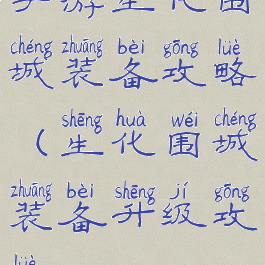 手游生化围
chéng zhuāng bèi gōng lüè
城装备攻略
shēng huà wéi chéng
（生化围城
zhuāng bèi shēng jí gōng
装备升级攻
lüè